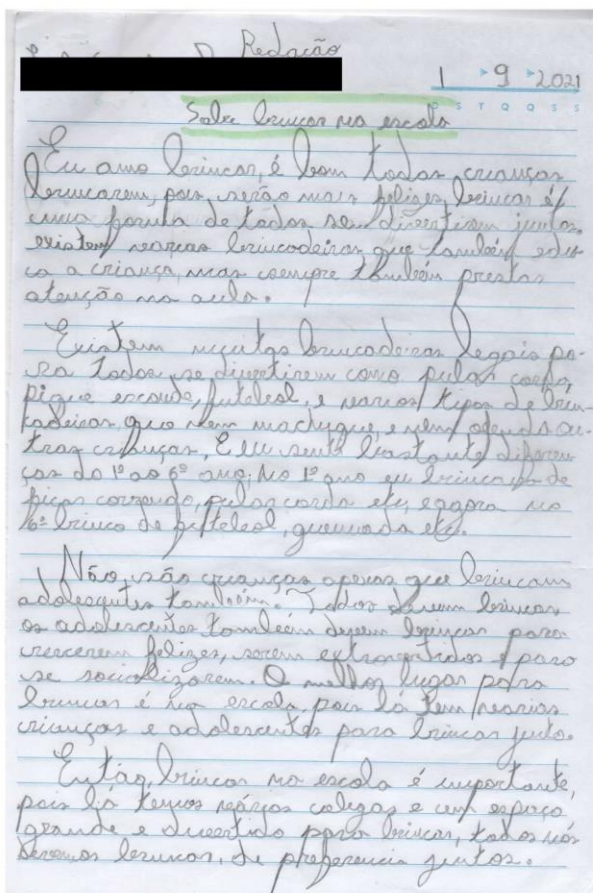 Redação
1 9 2021
D S T Q Q S S
Sobre brincar na escola
Eu amo brincar, é bom todas crianças
brincarem, pois serão mais felizes, brincar é
uma forma de todos se divertirem juntos,
existem várias brincadeiras que também edu-
ca a criança, mas sempre também prestar
atenção na aula.
Existem muitas brincadeiras legais pa-
ra todos se divertirem como pular corda,
pique esconde, futebol, e varios tipos de brin-
cadeiras, que nem machuque, e nem ofenda ou-
tras crianças. E eu sentí bastante diferen-
ças do 1º ao 6º ano, No 1º ano eu brincava de
ficar correndo, pular corda etc, e agora no
6º brinco de futebol, queimada etc.
Não, são crianças apenas que brincam
adolescentes também. Todos devem brincar
os adolescentes também devem brincar para
crescerem felizes, serem extrovertidos e para
se socializarem. O melhor lugar para
brincar é na escola, pois lá tem varias
crianças e adolescentes para brincar juntos.
Então, brincar na escola é importante,
pois lá temos vários colegas e um espaço
grande e divertido para brincar, todos nós
devemos brincar, de preferencia juntos.